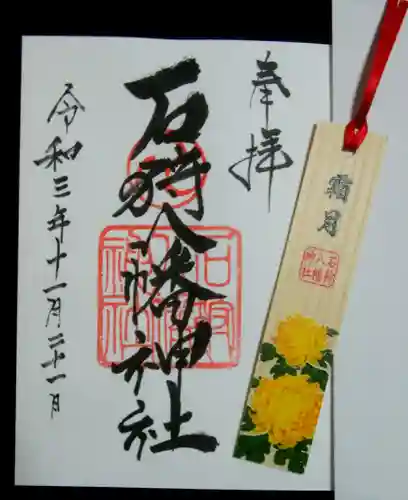 奉拝
石狩八幡神社
令和三年十一月二十一日
霜月
石狩
八幡
神社